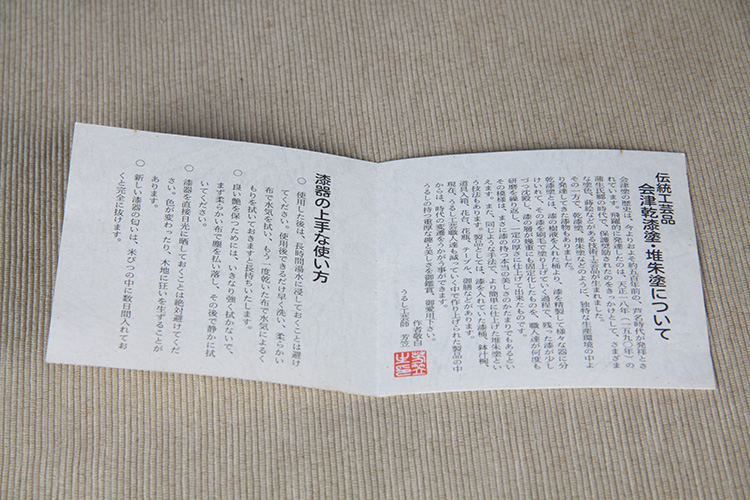 伝統工芸品
会津乾漆塗・堆朱塗について
会津塗の歴史は、今よりおよそ約五百年前の、芦名時代が発祥とさ
れています。飛躍的に発達したのは、天正一八年（一五九〇年）の
蒲生氏郷の時代で、保護奨励されたのをきっかけとして、さまざま
な塗色、蒔絵などがある技術工芸品が生まれました。
その一方で、乾漆塗、堆朱塗などのように、独特な生産環境の中よ
り発達してきた漆物もありました。
乾漆塗とは、漆の樹液を入れた桶より、漆を精製して様々な器に分
けいれて、その漆を刷毛で塗り上げていく過程で、残った漆が少し
づつ沈殿し、漆の層が幾重にも固形化したものを、職人達が何度も
研磨を繰り返し、一定の厚さに仕上げて出来たものです。
その模様は、まさに漆の持つ本当の美しさのたまりでもあるとい
えます。また、同じような手法で、より簡単に仕上げた堆朱塗とい
う技法もあります。製品としては、漆を入れていた漆桶、鉢汁椀、
道具入箱、花台、花瓶、テーブル、御膳などがあります。
現在、うるし工芸職人達も減っていく中で作り上げられた製品の中
からは、時代の変遷をうかがう事ができます。
うるしの持つ重厚な趣と美しさを御鑑賞、御愛用下さい。
作者敬白
うるし工芸師　芳笠
漆器の上手な使い方
○ 使用した後は、長時間湯水に浸しておくことは避け
てください。使用後できるだけ早く洗い、柔らかい
布で水気を拭い、もう一度乾いた布で水気によるく
もりを拭いておきますと長持ちいたします。
○ 良い艶を保つためには、いきなり強く拭かないで、
まず柔らかい布で塵を払い落し、その後で静かに拭
いてください。
○ 漆器を直接日光に晒しておくことは絶対避けてくだ
さい。色が変わったり、木地に狂いを生ずることが
あります。
○ 新しい漆器の匂いは、米びつの中に数日間入れてお
くと完全に抜けます。